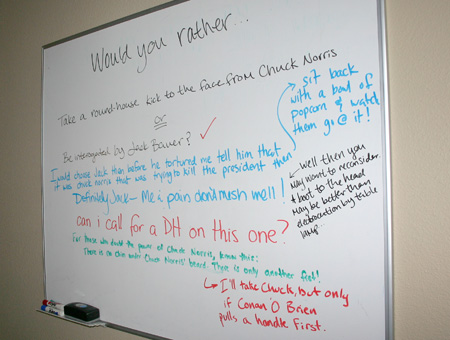 Would you rather...
Take a round-house kick to the face from Chuck Norris
or
Be interrogated by Jack Bauer? ✓
I would choose Jack then before he tortured me tell him that
it was chuck norris that was trying to kill the president then
sit back
with a bowl of
popcorn & watch
them go @ it!
Definitely Jack - Me & pain don't mush well!
Well then you
may want to reconsider.
A boot to the head
may be better than
electrocution by table
lamp...
can i call for a DH on this one?
For those who doubt the power of Chuck Norris, know this:
There is no chin under Chuck Norris' beard. There is only another fist!
I'll take Chuck, but only
if Conan O'Brien
pulls a handle first.